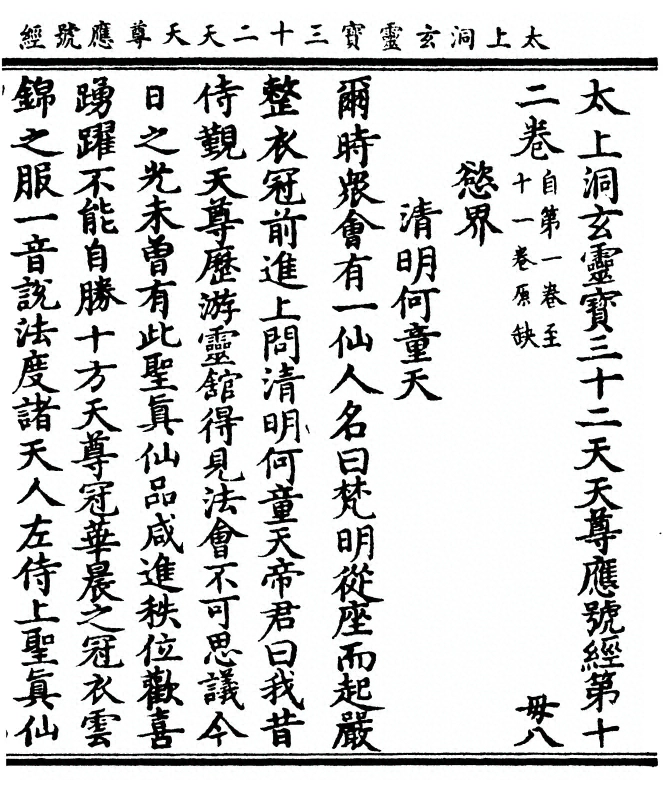 太上洞玄靈寶三十二天天尊應號經
太上洞玄靈寶三十二天天尊應號經第十
二卷 自第一卷至十一卷原缺 毋八
慾界
清明何童天
爾時衆會有一仙人名曰梵明從座而起嚴
整衣冠前進上問清明何童天帝君曰我昔
侍覲天尊歷游靈舘得見法會不可思議今
日之光未曾有此聖眞仙品咸進秩位歡喜
踴躍不能自勝十方天尊冠華晨之冠衣雲
錦之服一音說法度諸天人左侍上聖眞仙